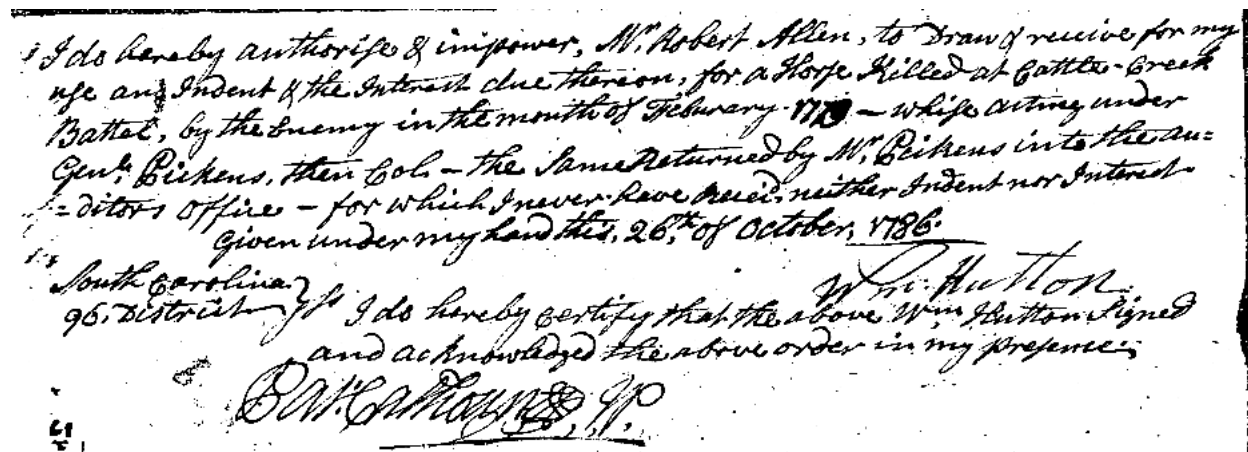 I do hereby authorise & impower, Mr. Robert Allen, to Draw & receive for my
use an Indent & the Interest due thereon, for a Horse Killed at Cattle-Creek
Battel, by the Enemy in the month of Feburary 1779 – whise acting under
Genl. Pickens, then Col. – the Same Returned by Mr. Pickens into the au=
=ditors office – for which I never have Receid. neither Indent nor Interest
Given under my hand this, 26th. of October, 1786.
Wm. Hutton
South Carolina
96. District } Ss I do hereby certify that the above Wm. Hutton Signed
and acknowledged the above order in my presence;
Pat. Calhoun J.P.